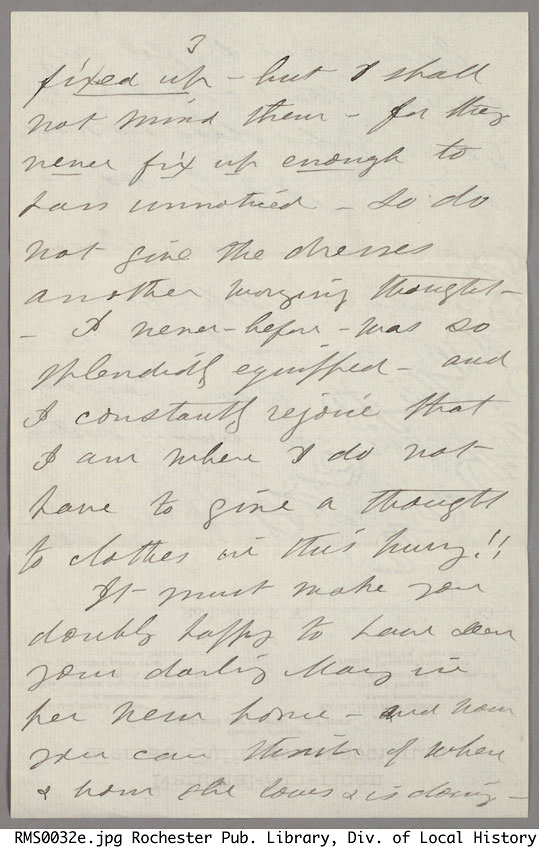 3
fixed up - but I shall
not mind them - for they
never fix up enough to
pass unnoticed - so do
not give the dresses
another worrying thought -
- I never - before - was so
splendidly equipped - and
I constantly rejoice that
I am where I do not
have to give a thought
to clothes in this hurry!!
It must make you
doubly happy to have seen
your darling Mary in
her new home - and now
you can think of where
& how she loves & is doing -
RMS0032e.jpg Rochester Pub. Library, Div. of Local History